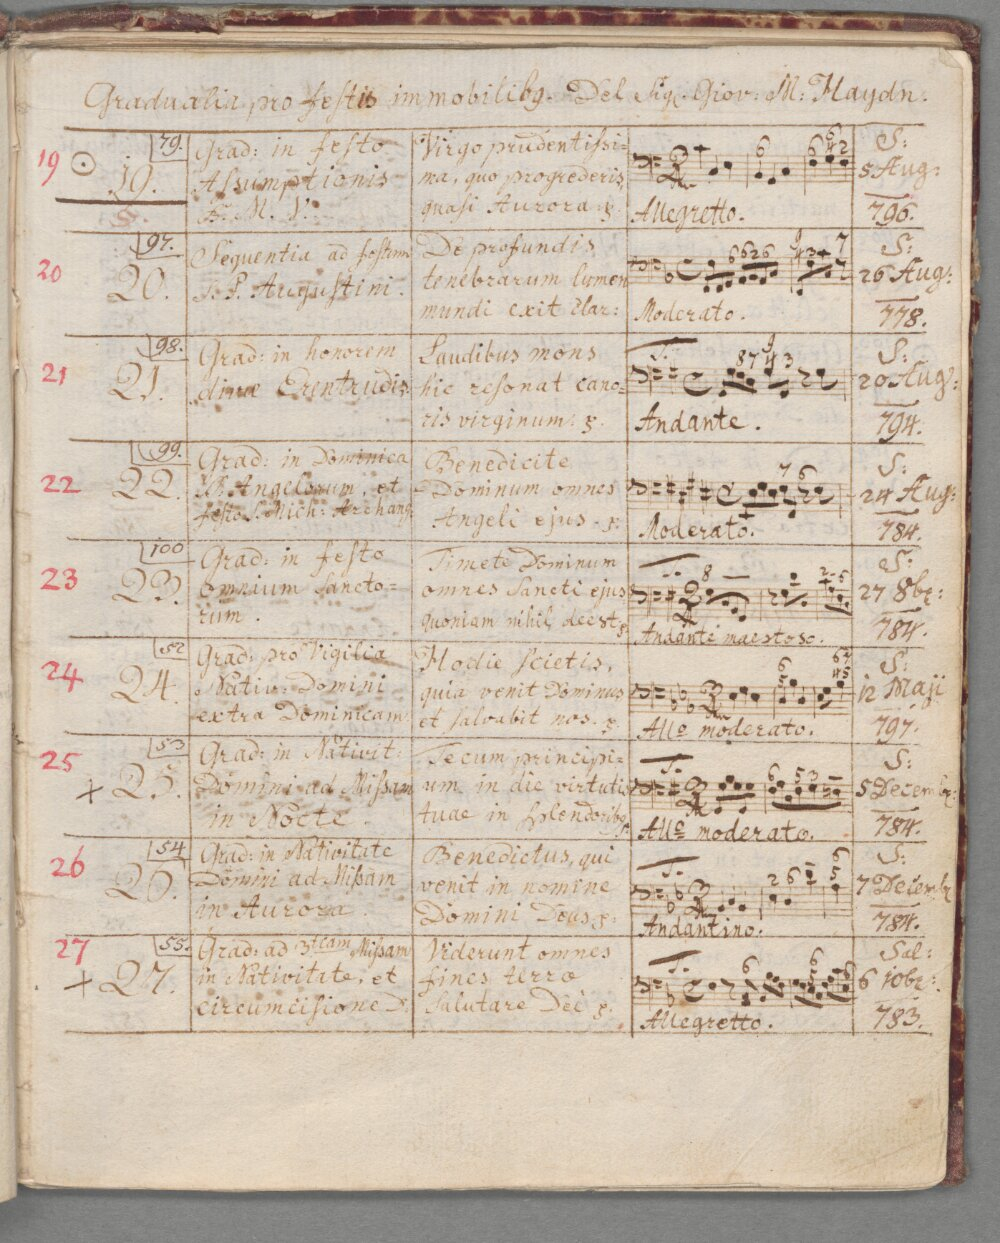 Gradualia pro festis immobilibq. Del Sig. Giov: M: Haydn.
19 19. 79.
Grad: in festo
Assumptionis
B. M. V.
Virgo prudentissi=
ma, quo progrederis,
quasi Aurora
6 6 6 4 2
Allegretto.
S:
5 Aug:
796.
20 20. 97.
Sequentia ad festum
S. P. Augustini.
De profundis
tenebrarum lumen
mundi exit clar:
6 6 2 6 9 4 3 4 7
Moderato.
S:
26 Aug:
778.
21 21. 98.
Grad: in honorem
divae Erentrudis
Laudibus mons
hic resonat cano=
ris virginum:
T. 8 7 9 4 3
Andante.
S:
20 Aug:
794.
22 22. 99.
Grad: in Dominica
SS. Angelorum, et
festo S. Mich: Archang.
Benedicite
Dominum omnes
Angeli ejus
7 6
Moderato.
S:
24 Aug:
784.
23 23. 100
Grad: in festo
omnium Sancto=
rum.
Timete Dominum
omnes Sancti ejus
quoniam nihil deest
T. 8
Andante maestoso.
S:
27 8br:
784.
24 24 52
Grad: pro Vigilia
Nativ: Domini
extra Dominicam
Hodie scietis,
quia venit Dominus
et salvabit nos.
Allo moderato.
S:
12 Maji
797.
25 + 25. 53
Grad: in Nativit:
Domini ad Missam
in Nocte.
Tecum principi=
um in die virtutis
tuae in splendoribq
T. 6 5 3
Allo moderato.
S:
5 Decembr:
784.
26 26. 54
Grad: in Nativitate
Domini ad Missam
in Aurora.
Benedictus, qui
venit in nomine
Domini Deus
T. 2 6
Andantino.
S:
7 Decembr
784.
27 + 27. 55.
Grad: ad 3tiam Missam
in Nativitate, et
circumcisione D.
Viderunt omnes
fines terrae
salutare Dei
T. 6
Allegretto.
Sal:
6 10br:
783.